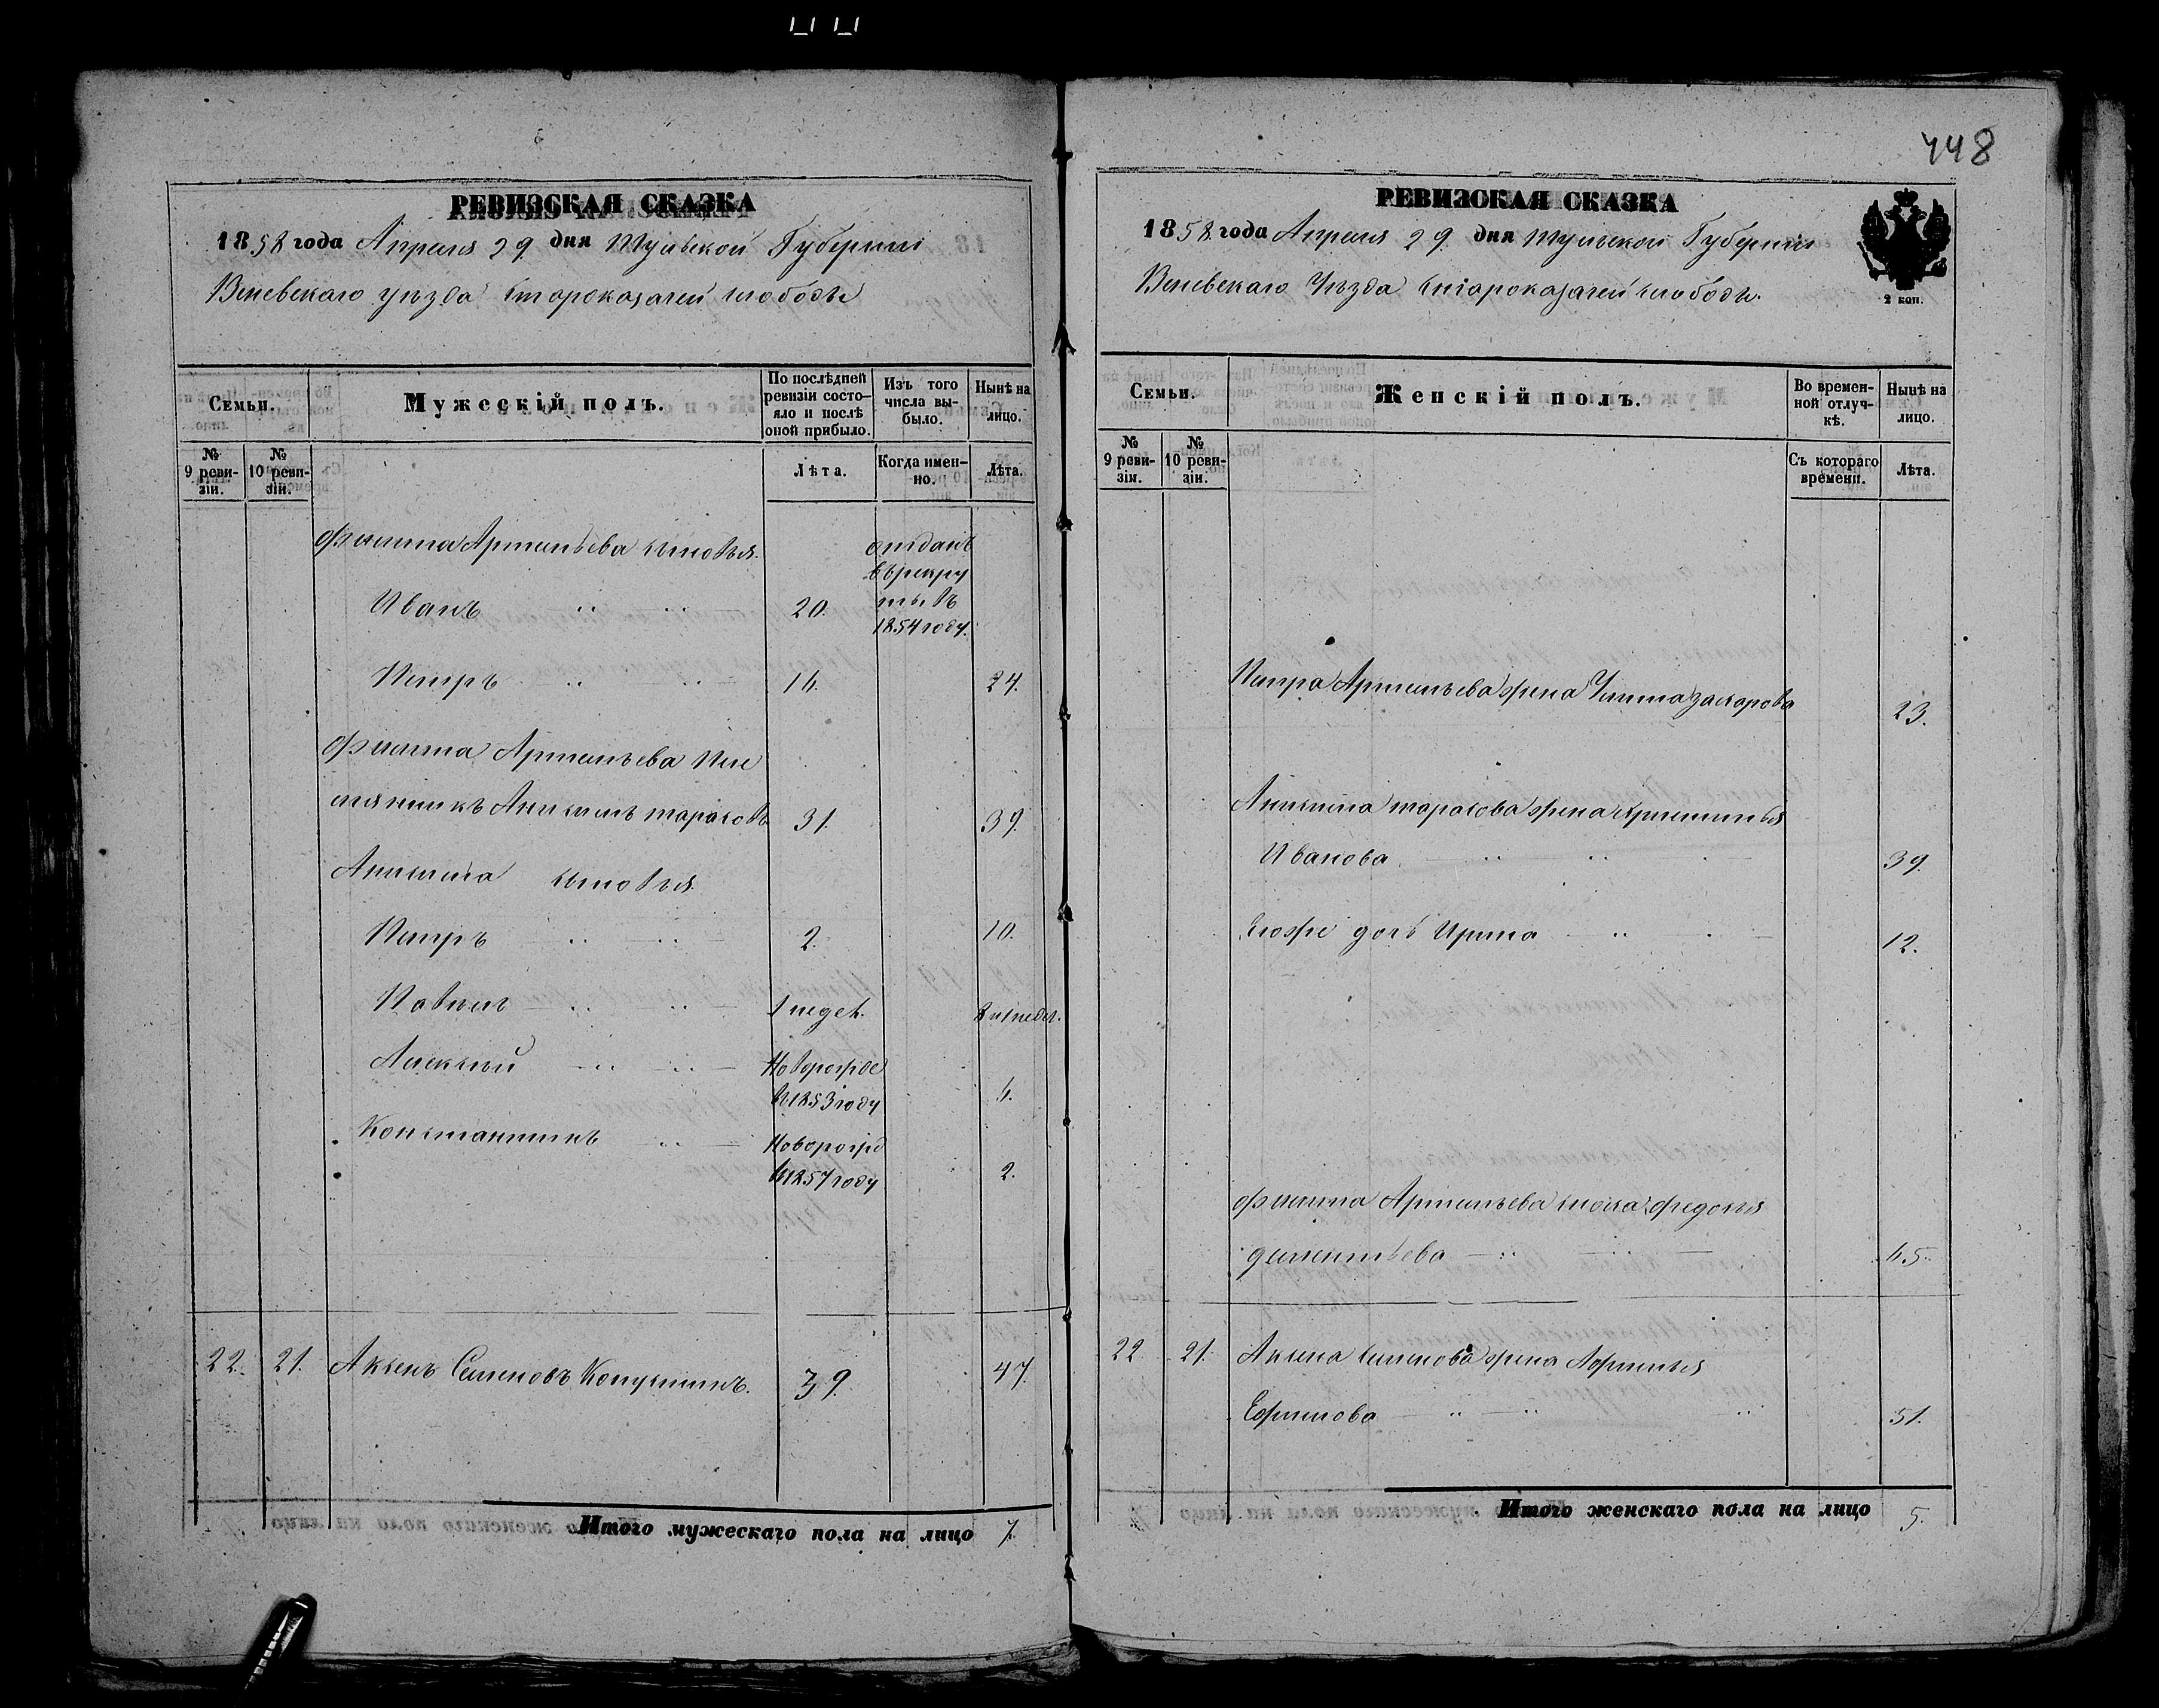 448
РЕВИЗСКАЯ СКАЗКА
1858 года Апреля 29 дня Тульской Губерніи
Веневскаго уѣзда Староказачей слободы
Семьи.
Мужескій полъ.
По послѣдней ревизіи состояло и послѣ оной прибыло.
Изъ того числа выбыло.
Нынѣ на лицо.
№ 9 ревизіи.
№ 10 ревизіи.
Лѣта.
Когда именно.
Лѣта.
Филипа Артемьева сыновья.
отданъ
въ рекру
Иванъ 20. ты въ
1854 году.
Петръ 16. 24.
Филипа Артемьева Пле
мянникъ Анисимъ Тарасовъ 31. 39.
Анисима сыновья
Петръ 2. 10.
Павелъ 1 недел. 8 и 1 недел.
Алексѣй Новорожде
в 1853 году 6.
Константинъ Новорожд
в 1857 году 2.
22. 21. Аксенъ Семеновъ 39. 47.
Итого мужескаго пола на лицо 7.
РЕВИЗСКАЯ СКАЗКА
1858 года Апреля 29 дня Тульской Губерніи
Веневскаго Уѣзда Староказачей слободы.
2 коп.
Семьи.
Женскій полъ.
Во временной отлучкѣ.
Нынѣ на лицо.
№ 9 ревизіи.
№ 10 ревизіи.
Съ котораго времени.
Лѣта.
Петра Артемьева жена 23.
Анисима Тарасова жена
Иванова 39.
Егоже дочь Ирина 12.
Филипа Артемьева сноха Федосья
Дементьева 45.
22 21. Аксена Семенова жена
Ефимова 51.
Итого женскаго пола на лицо 5.